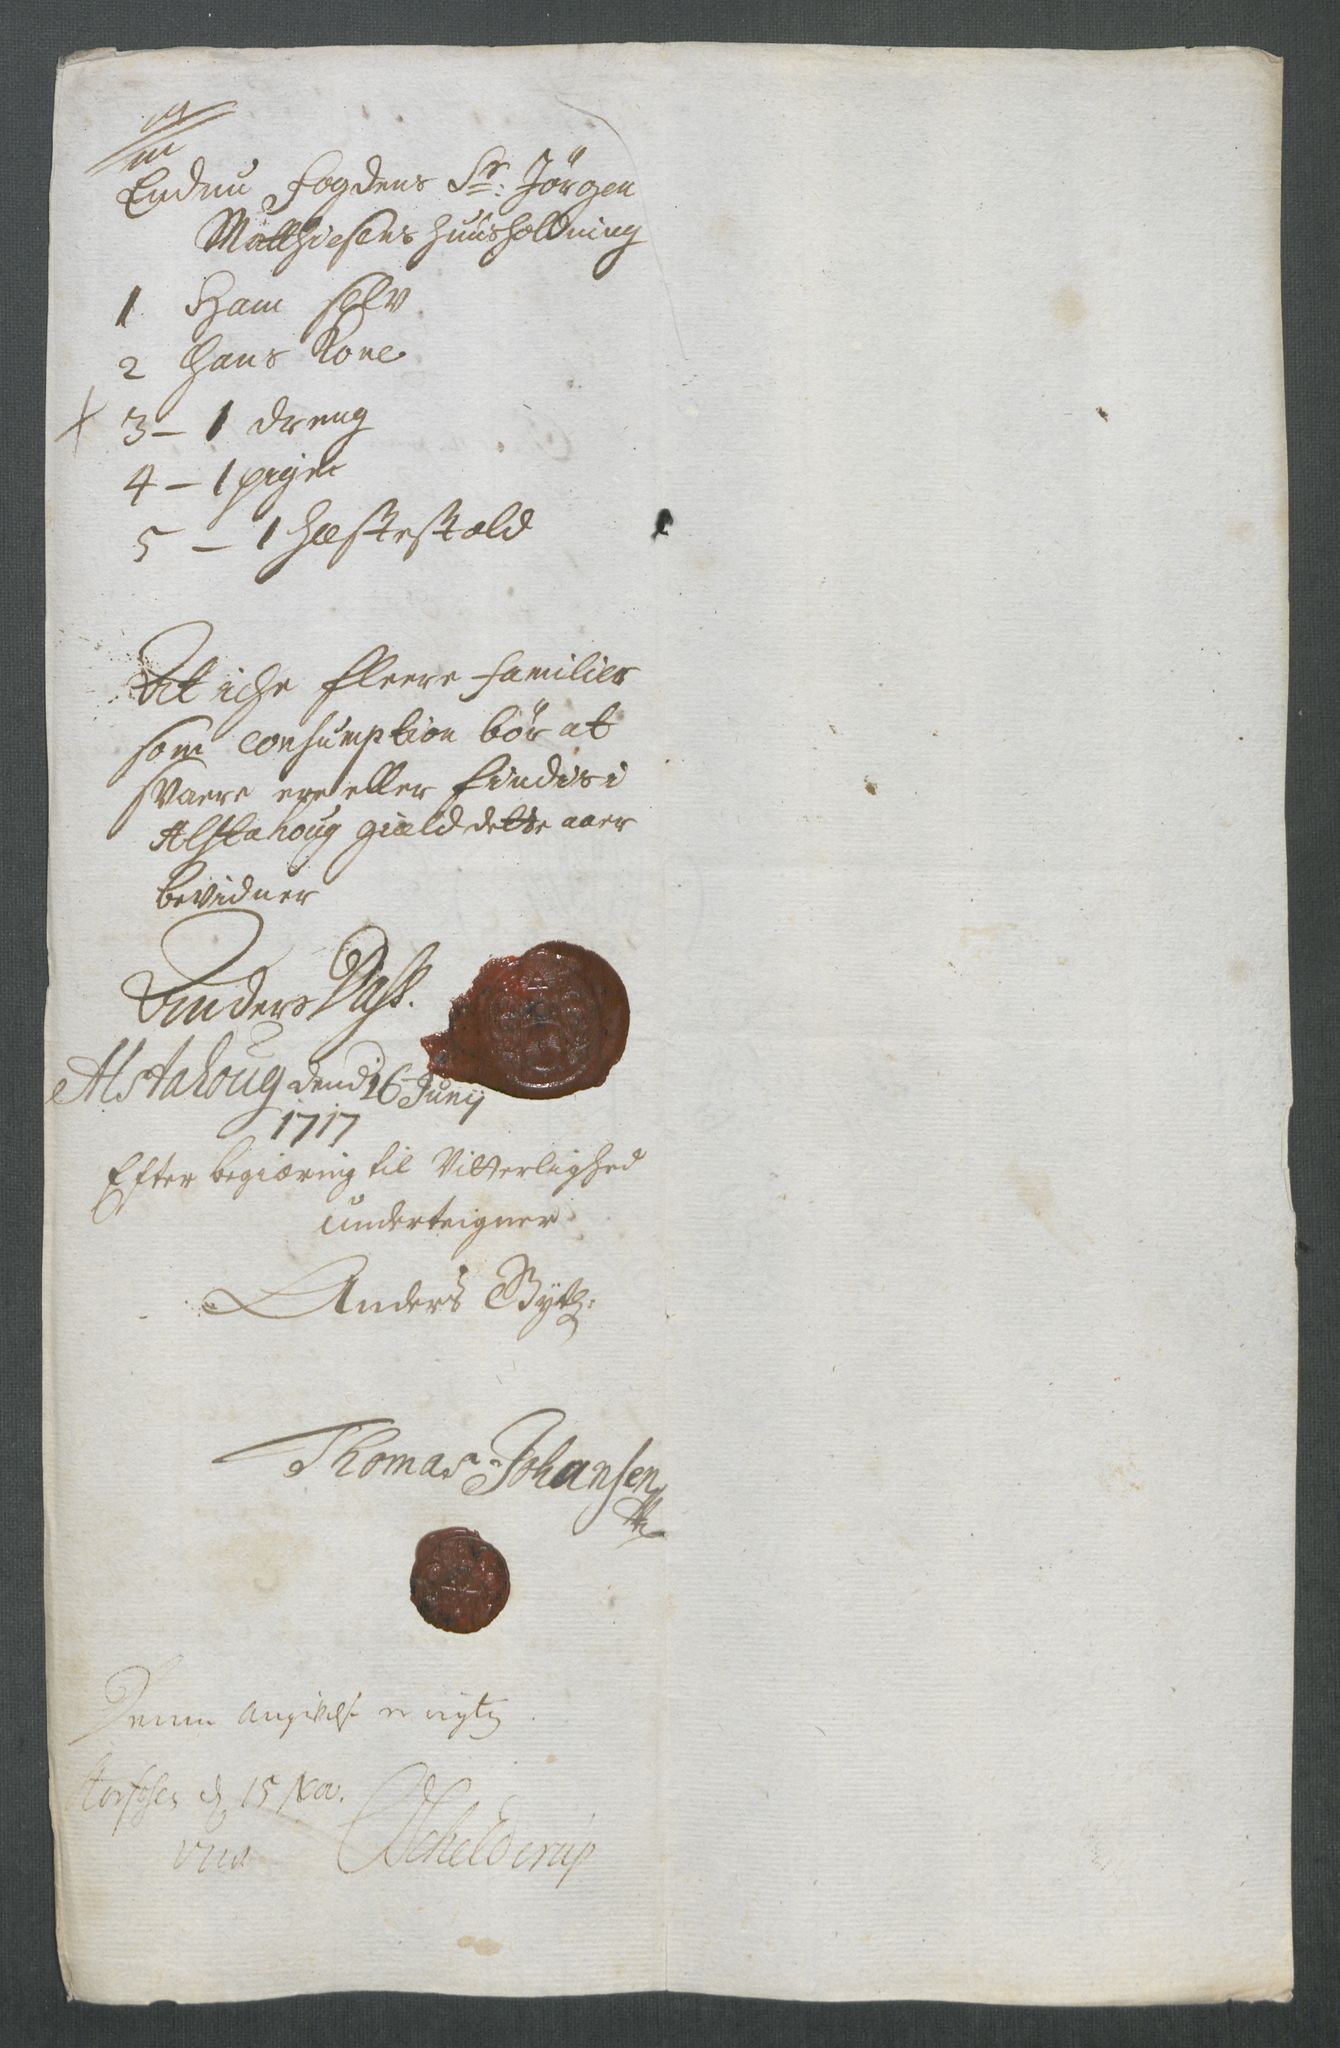 Endnu Fogdens Sr: Jörgen
Matthiesens huusholdning
1 Ham selv
2 hans Kone
3 – 1 dreng
4 – 1 pige
5 – 1 hæstestald
At iche fleere familier
som consumption bör at
svaere ere eller findis i
Alstahoug gield dette aaer
bevidner
Anders Dass.
Alstahoug dend 16 Junij
1717
Efter begiæring til Vitterlighed
underteigner
Anders Bytz:
Thomas Johansen
Denne angivelse er rigtig
d 15
Schelderup